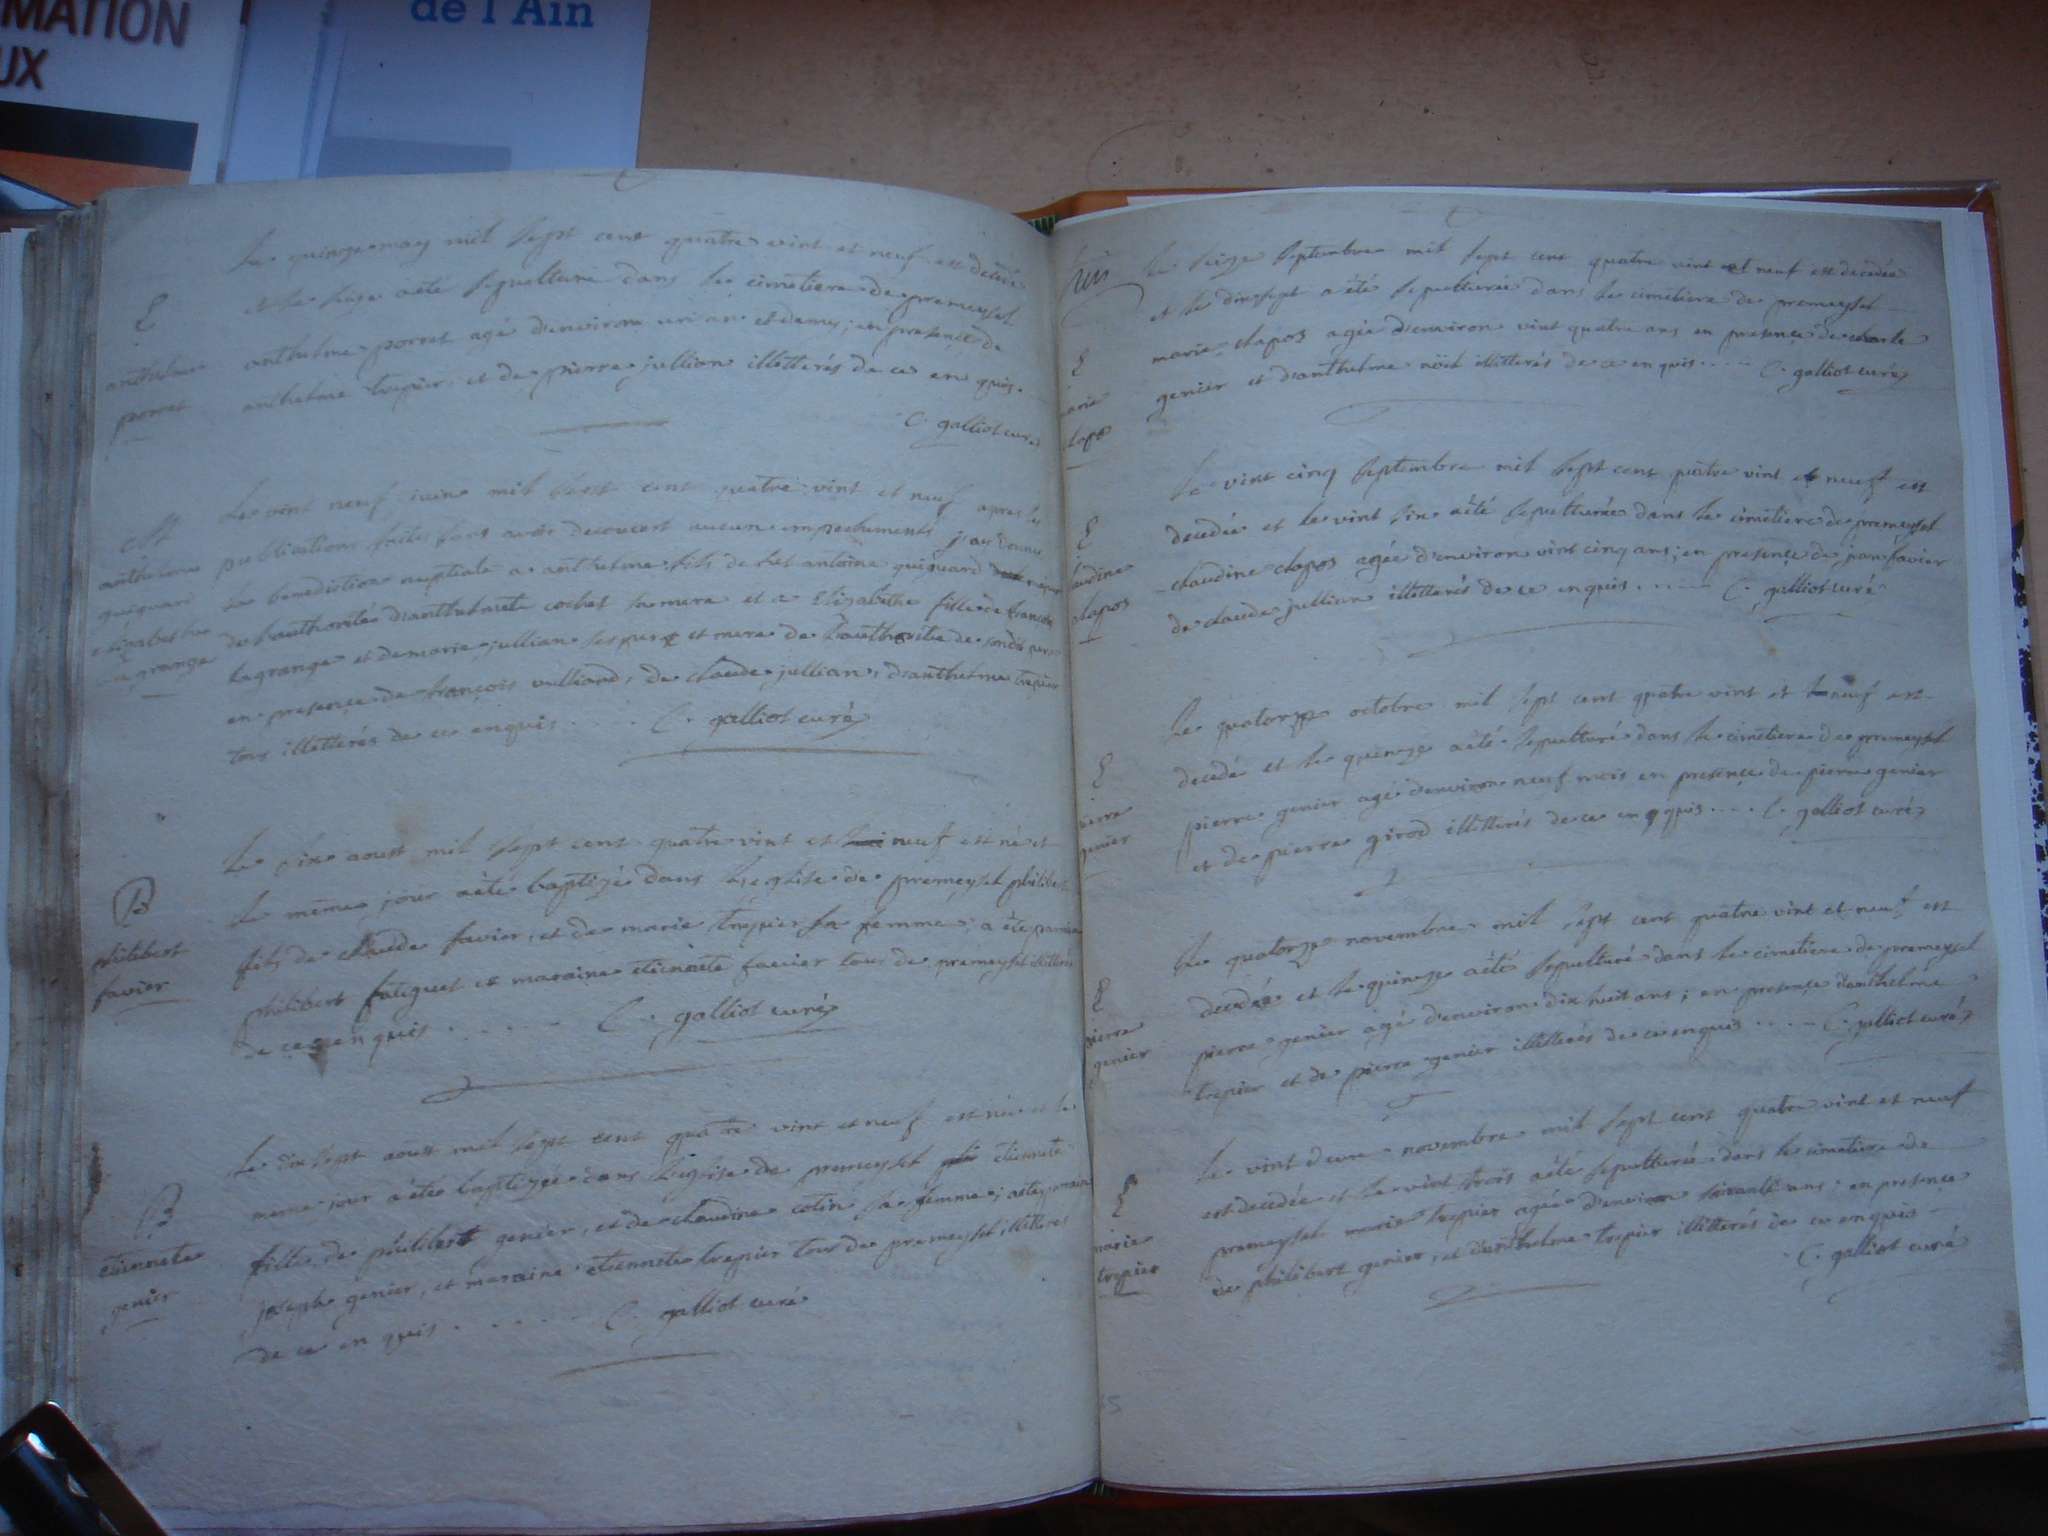 MATION
UX
de l'Ain
Le quinze may mil sept cent quatre vint et neuf est decedé
et le seze aété sepulturé dans le cimetiere de premeysel
anthelme porret agé d'environ un an et demy ; en presençe de
anthelme trepier et de pierre jullion illetterés de ce en quis.
C. galliot curé
E
anthelme
porret
Le vint neuf juin mil sept cent quatre vint et neuf apres les
publications faites sans avoir decouvert aucun empechements j'ay donné
la benediction nuptiale a anthelme fils de feu antoine guiguard
de l'authorité d'anthelmete cochet sa mere et a Elizabethe fille de françois
lagrange et de marie jullian ses pere et mere de l'authorité de
en presençe de françois vulliand, de claude jullian, d'anthelme trepier
tous illetterés de ce enquis . . . . C. galliot curé
M
anthelme
guiguard
elizabethe
la grange
Le six aoust mil sept cent quatre vint et neuf est né et
le même jour aété baptizé dans l'eglise de premeysel philibert
fils de claude favier, et de marie trepier sa femme ; a été parain
philibert et maraine etiennete favier tous de premeysel illitterés
de ce en quis . . . . . . C. galliot curé
B
philibert
favier
Le dix sept aoust mil sept cent quatre vint et neuf est née et le
meme jour a été baptizée dans l'eglise de premeysel etiennete
fille de philibert genier, et de claudine colin sa femme ; aété parain
joseph genier, et maraine etiennete trepier tous de premeysel illitterés
de ce en quis . . . . . . C. galliot curé
B
etiennete
genier
Le seize septembre mil sept cent quatre vint et neuf est decedée
et le dixsept a été sepulturée dans le cimetiere de premeysel
marie clapos agée d'environ vint quatre ans en presençe de
genier et d'anthelme noël illitterés de ce en quis . . . . C. galliot curé
E
marie
clapos
Le vint cinq septembre mil sept cent quatre vint et neuf est
decedée et le vint six aété sepulturée dans le cimetiere de premeysel
claudine clapos agée d'environ vint cinq ans ; en presençe de jean favier
de claude jullian illetterés de ce en quis . . . . . C. galliot curé
E
claudine
clapos
Le quatorze octobre mil sept cent quatre vint et neuf est
decedé et le quinze aété sepulturé dans le cimetiere de premeysel
pierre genier agé d'environ neuf mois en presençe de pierre genier
et de pierre girod illitterés de ce en quis . . . . C. galliot curé
E
pierre
genier
Le quatorze novembre mil sept cent quatre vint et neuf est
decedé et le quinze aété sepulturé dans le cimetiere de premeysel
pierre genier agé d'environ dix huit ans ; en presençe d'anthelme
trepier et de pierre genier illitterés de ce en quis . . . . C. galliot curé
E
pierre
genier
Le vint deux novembre mil sept cent quatre vint et neuf
est decedée et le vint trois aété sepulturée dans le cimetiere de
premeysel marie trepier agée d'environ soixante ans ; en presençe
de philibert genier, et d'anthelme trepier illitterés de ce en quis
C. galliot curé
E
marie
trepier